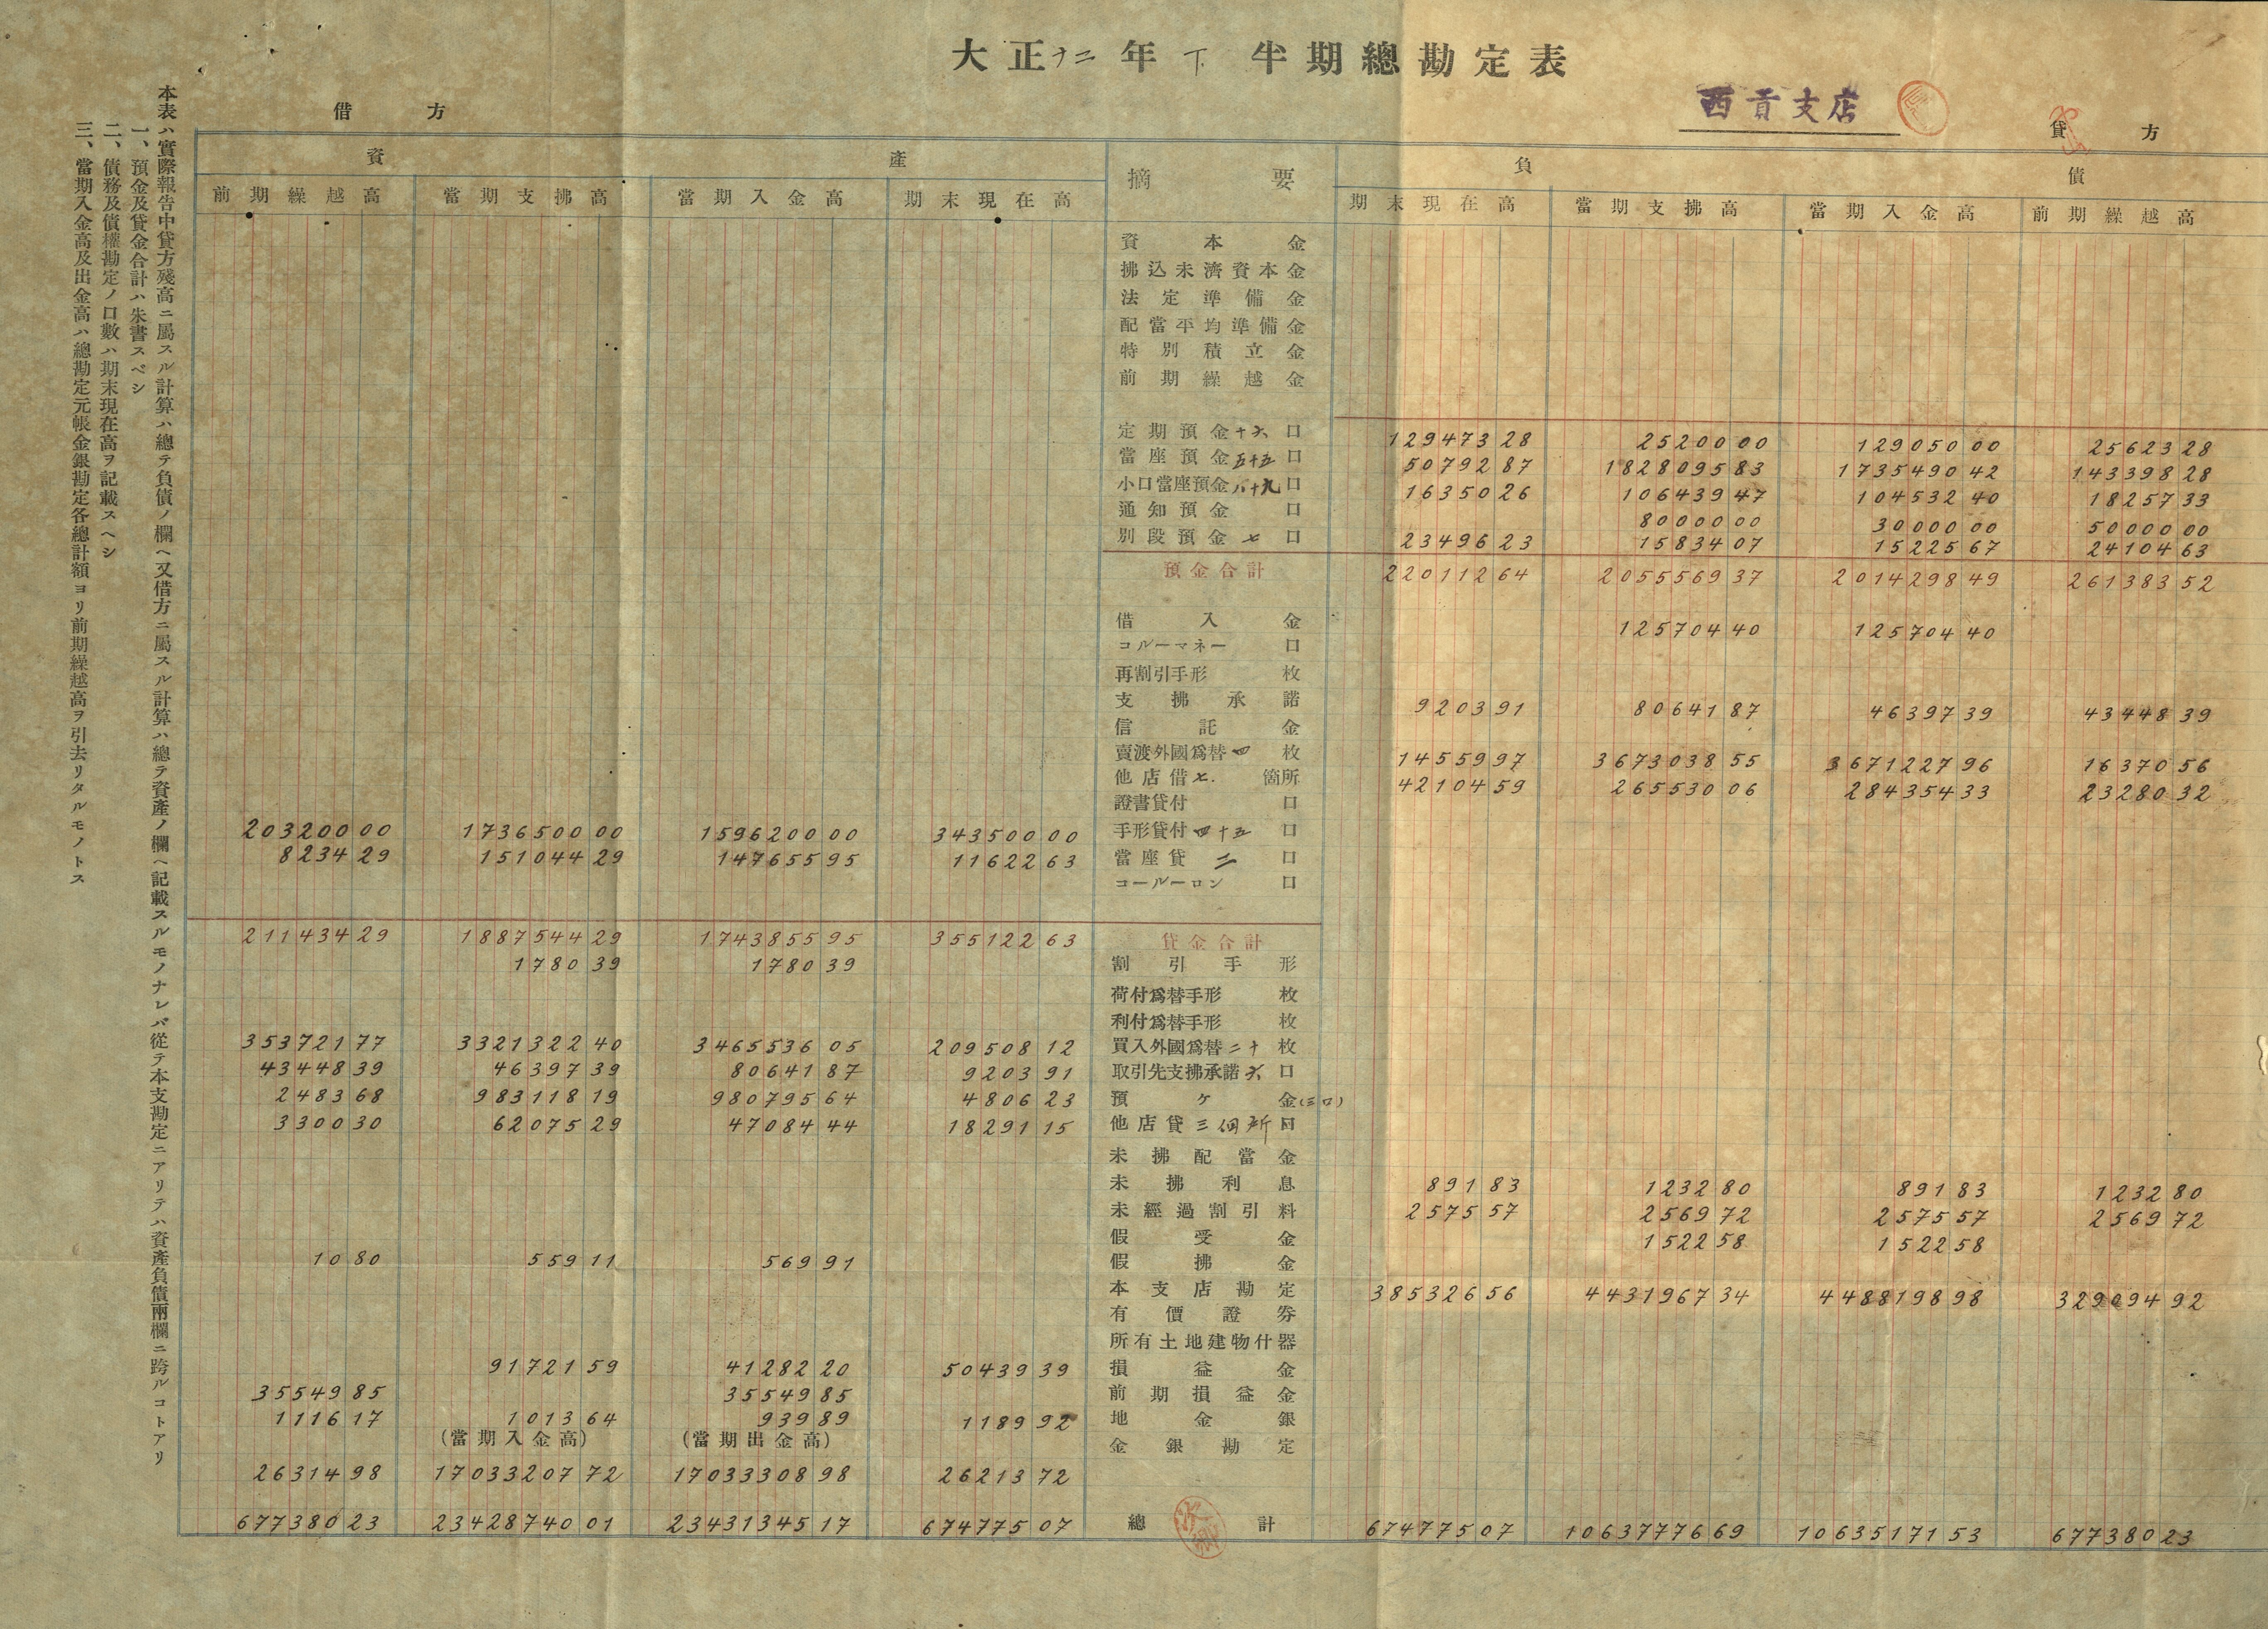 大正十二年下半期總勘定表
西貢支店
借方 貸方
資產 摘要 負債
前期繰越高 當期支拂高 當期入金高 期末現在高 期末現在高 當期支拂高 當期入金高 前期繰越高
資本金
拂込未濟資本金
法定準備金
配當平均準備金
特別積立金
前期繰越金
定期預金十六口 129473 28 25200 00 129050 00 25623 28
當座預金五十五口 50792 87 1828095 83 1735490 42 143398 28
小口當座預金八十九口 16350 26 106439 47 104532 40 18257 33
通知預金口 80000 00 30000 00 50000 00
別段預金七口 23496 23 15834 07 15225 67 24104 63
預金合計 220112 64 2055569 37 2014298 49 261383 52
借入金 125704 40 125704 40
コルーマネー口
再割引手形枚
支拂承諾 9203 91 80641 87 46397 39 43448 39
信託金
賣渡外國爲替四枚 14559 97 3673038 55 3671227 96 16370 56
他店借七.箇所 42104 59 265530 06 284354 33 23280 32
證書貸付口
203200 00 1736500 00 1596200 00 343500 00 手形貸付四十五口
8234 29 151044 29 147655 95 11622 63 當座貸二口
コールーロン口
211434 29 1887544 29 1743855 95 355122 63 貸金合計
1780 39 1780 39 割引手形
荷付爲替手形枚
利付爲替手形枚
353721 77 3321322 40 3465536 05 209508 12 買入外國爲替二十枚
43448 39 46397 39 80641 87 9203 91 取引先支拂承諾六口
2483 68 983118 19 980795 64 4806 23 預ケ金(三口)
3300 30 62075 29 47084 44 18291 15 他店貸三個所口
未拂配當金
未拂利息 891 83 1232 80 891 83 1232 80
未經過割引料 2575 57 2569 72 2575 57 2569 72
假受金 1522 58 1522 58
10 80 559 11 569 91 假拂金
本支店勘定 385326 56 4431967 34 4488198 98 329094 92
有價證券
所有土地建物什器
91721 59 41282 20 50439 39 損益金
35549 85 35549 85 前期損益金
1116 17 1013 64 939 89 1189 92 地金銀
(當期入金高) (當期出金高)
金銀勘定
26314 98 17033207 72 17033308 98 26213 72
677380 23 23428740 01 23431345 17 674775 07 總計 674775 07 10637776 69 10635171 53 677380 23
本表ハ實際報告中貸方殘高ニ屬スル計算ハ總テ負債ノ欄ヘ又借方ニ屬スル計算ハ總テ資產ノ欄ヘ記載スルモノナレバ從テ本支勘定ニアリテハ資產負債兩欄ニ跨ルコトアリ
一、預金及貸金合計ハ朱書スベシ
二、債務及債權勘定ノ口數ハ期末現在高ヲ記載スヘシ
三、當期入金高及出金高ハ總勘定元帳金銀勘定各總計額ヨリ前期繰越高ヲ引去リタルモノトス